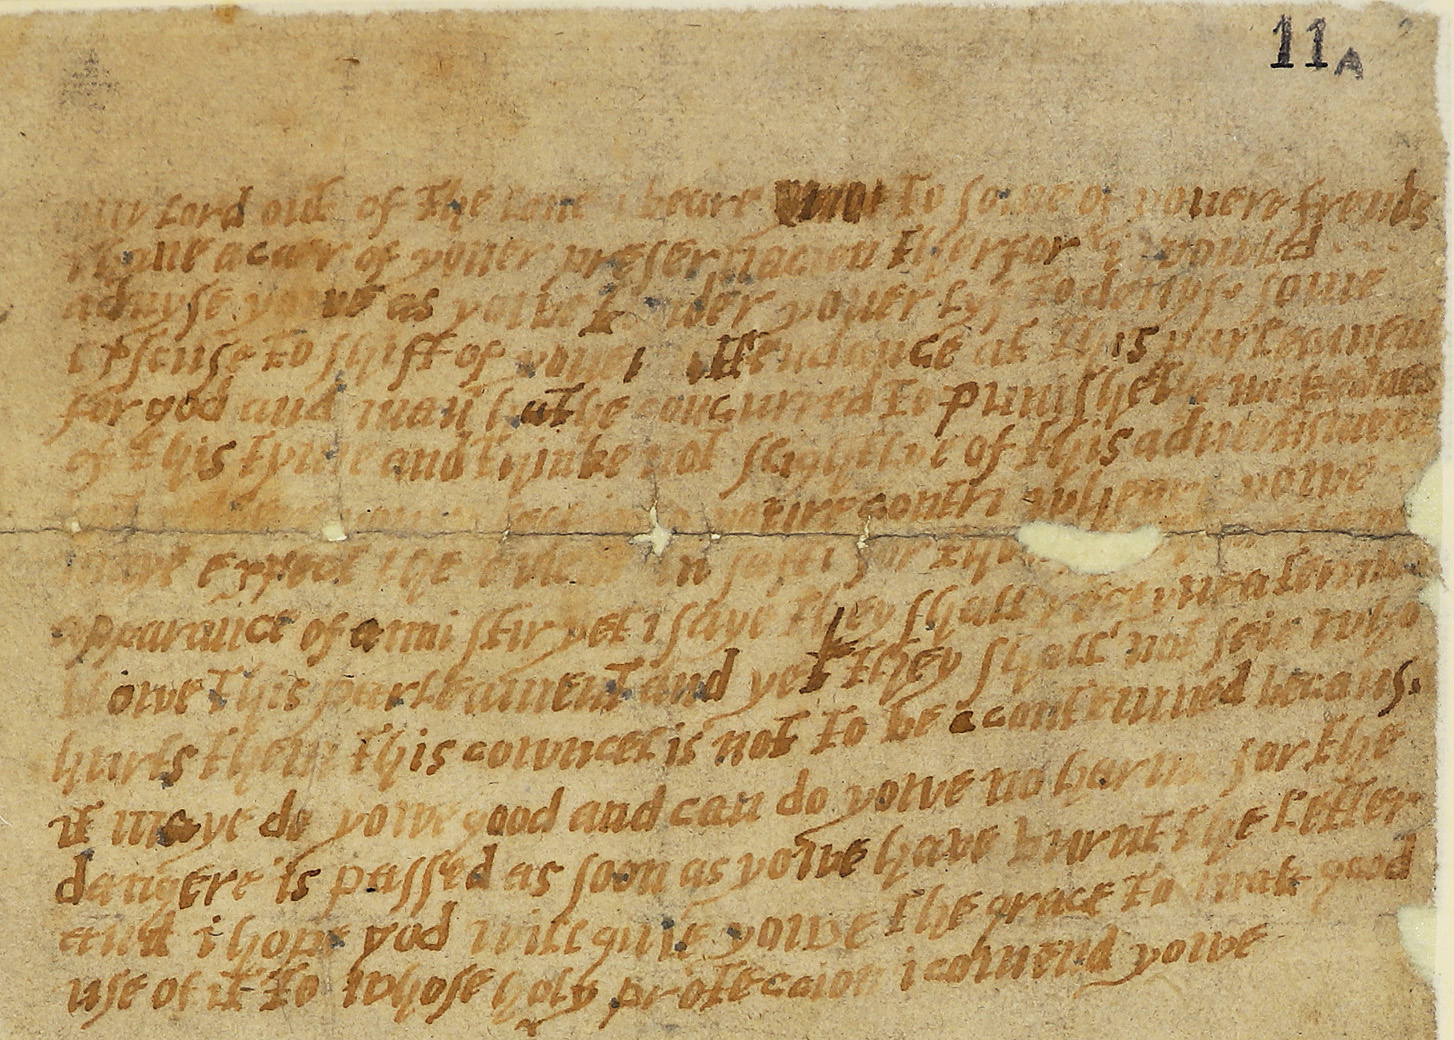 11A
my lord out of the love i beare to some of youere frends
i have a caer of youer preservacion therfor i would
advyse yowe as yowe tender youer lyf to devys some
exscuse to shift of youer attendance at this parleament
for god and man hathe concurred to punishe the wickednes
of this tyme and thinke not slightlye of this advertisment
youre contri wheare yowe
maye expect the event in safti for thowghe
apparance of anni stir yet i saye they shall receyve a terrible
blowe this parleament and yet they shall not seie who
hurts them this cowncel is not to be acontemned because
it maye do yowe good and can do yowe no harme for the
dangere is passed as soon as yowe have burnt the letter
and i hope god will give yowe the grace to mak good
use of it to whose holy proteccion i comend yowe